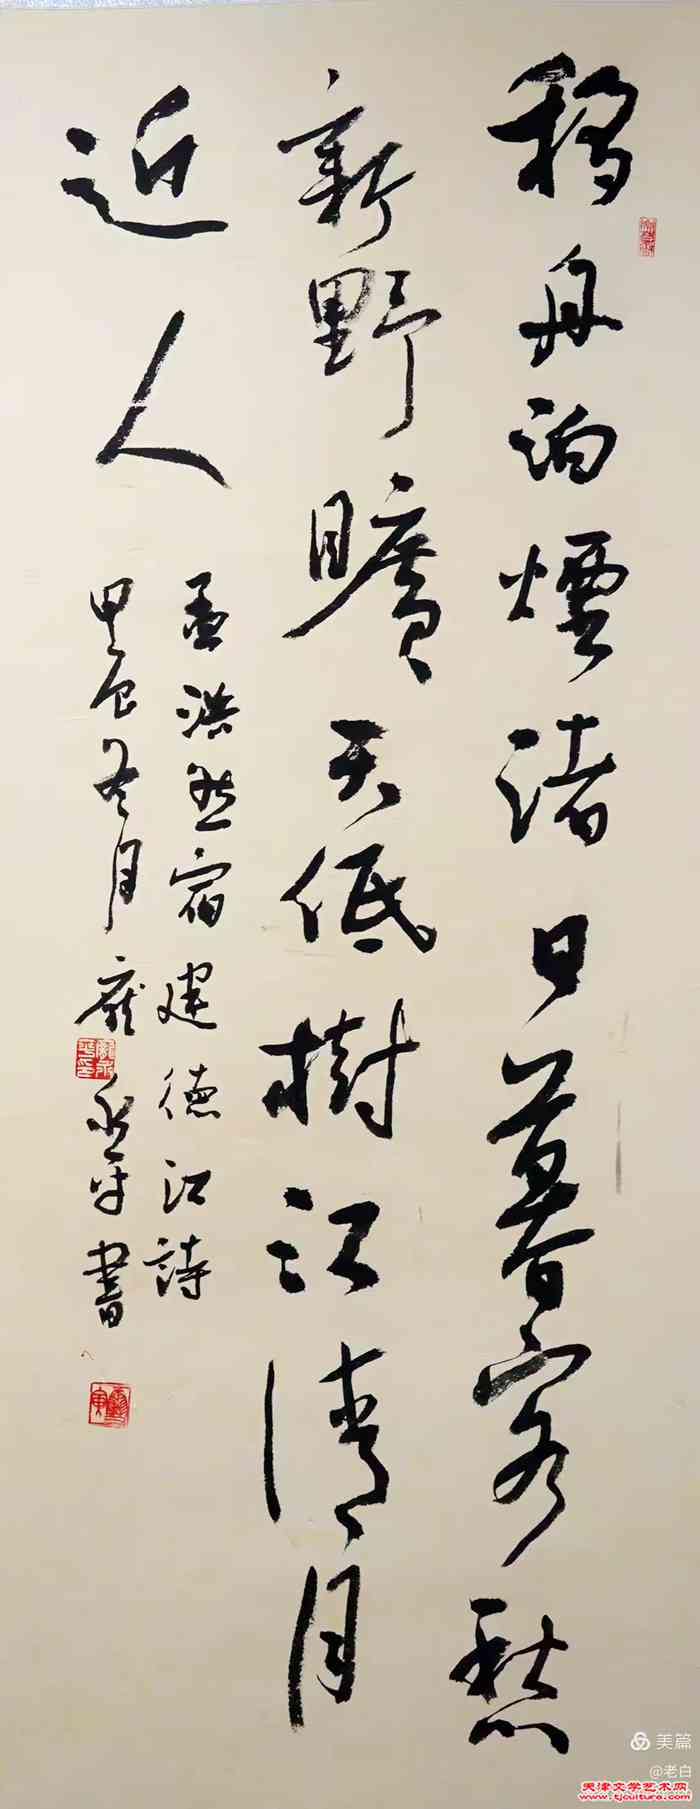 移舟泊煙渚日暮客愁
新野曠天低樹江清月
近人
孟浩然宿建德江詩
甲辰冬月龐永平書
美篇
@老白
天津文学艺术网
www.tjcultura.com